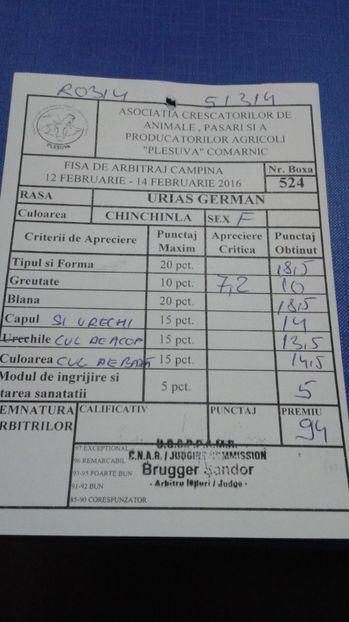 RO314 51314
ASOCIATIA CRESCATORILOR DE
ANIMALE , PASARI SI A
PRODUCATORILOR AGRICOLI
"PLESUVA" COMARNIC
PLESUVA
FISA DE ARBITRAJ CAMPINA
12 FEBRUARIE - 14 FEBRUARIE 2016
Nr. Boxa
524
RASA URIAS GERMAN
Culoarea CHINCHINLA SEX F
Criterii de Apreciere Punctaj Maxim Apreciere Critica Punctaj Obtinut
Tipul si Forma 20 pct. 18,5
Greutate 10 pct. 7,2 10
Blana 20 pct. 18,5
Capul SI URECHI 15 pct. 14
Urechile CUL DE ACOP 15 pct. 13,5
Culoarea CUL DE BAZA 15 pct. 14,5
Modul de ingrijire si
tarea sanatatii 5 pct. 5
EMNATURA
RBITRILOR
CALIFICATIV PUNCTAJ PREMIU
94
97 EXCEPTIONAL
96 REMARCABIL
93-95 FOARTE BUN
91-92 BUN
85-90 CORESPUNZATOR
C.N.A.R. / JUDGING COMMISSION
Brugger Sandor
- Arbitru Iepuri / Judge -